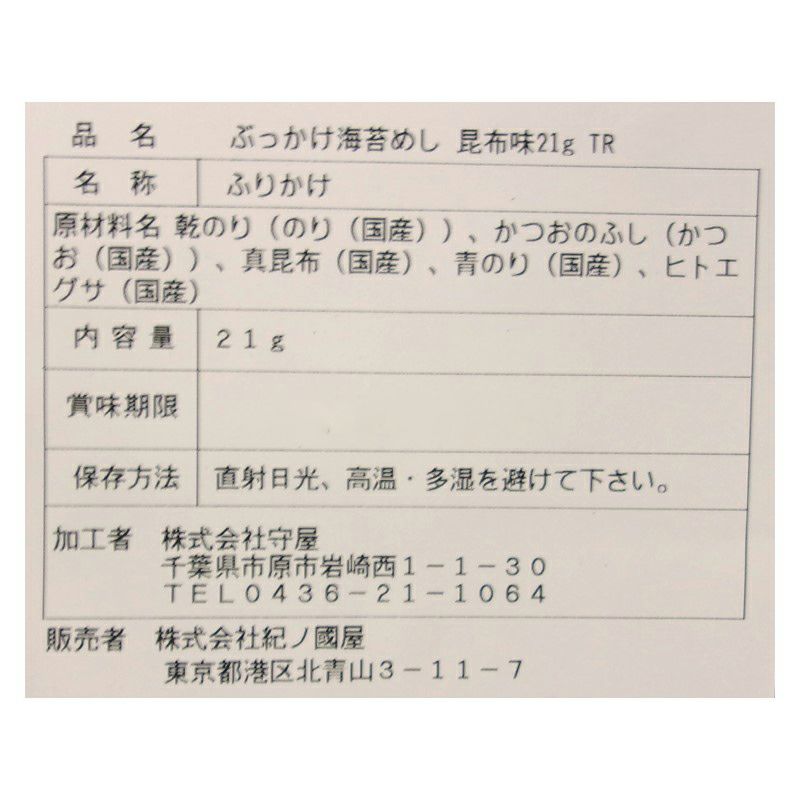 品名 ぶっかけ海苔めし 昆布味21g TR
名称 ふりかけ
原材料名 乾のり（のり（国産））、かつおのふし（かつ
お（国産））、真昆布（国産）、青のり（国産）、ヒトエ
グサ（国産）
内容量 ２１ｇ
賞味期限
保存方法 直射日光、高温・多湿を避けて下さい。
加工者 株式会社守屋
千葉県市原市岩崎西１－１－３０
ＴＥＬ０４３６－２１－１０６４
販売者 株式会社紀ノ國屋
東京都港区北青山３－１１－７